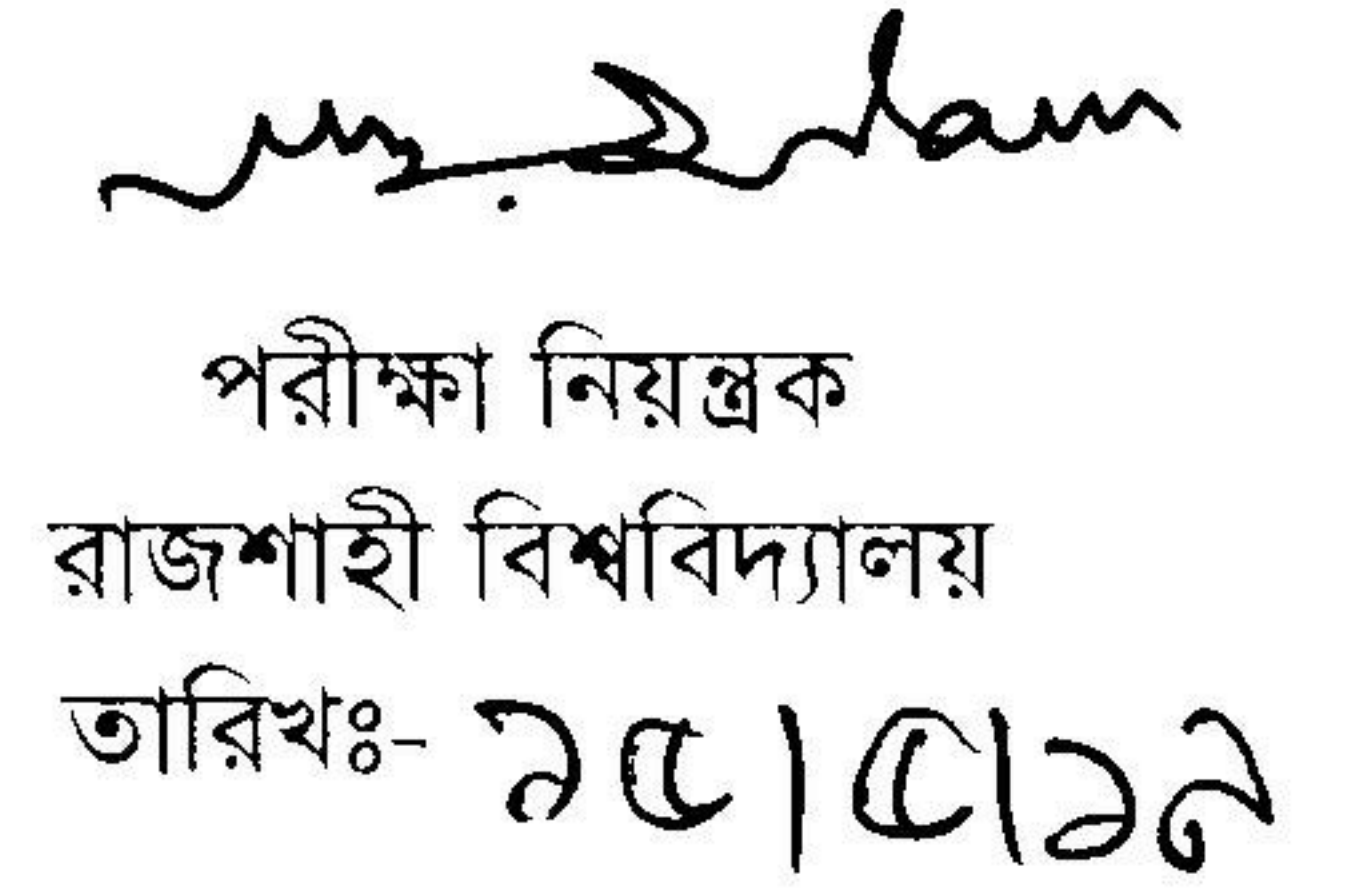 পরীক্ষা নিয়ন্ত্রক
রাজশাহী বিশ্ববিদ্যালয়
তারিখঃ- ১৫।৫।১৯